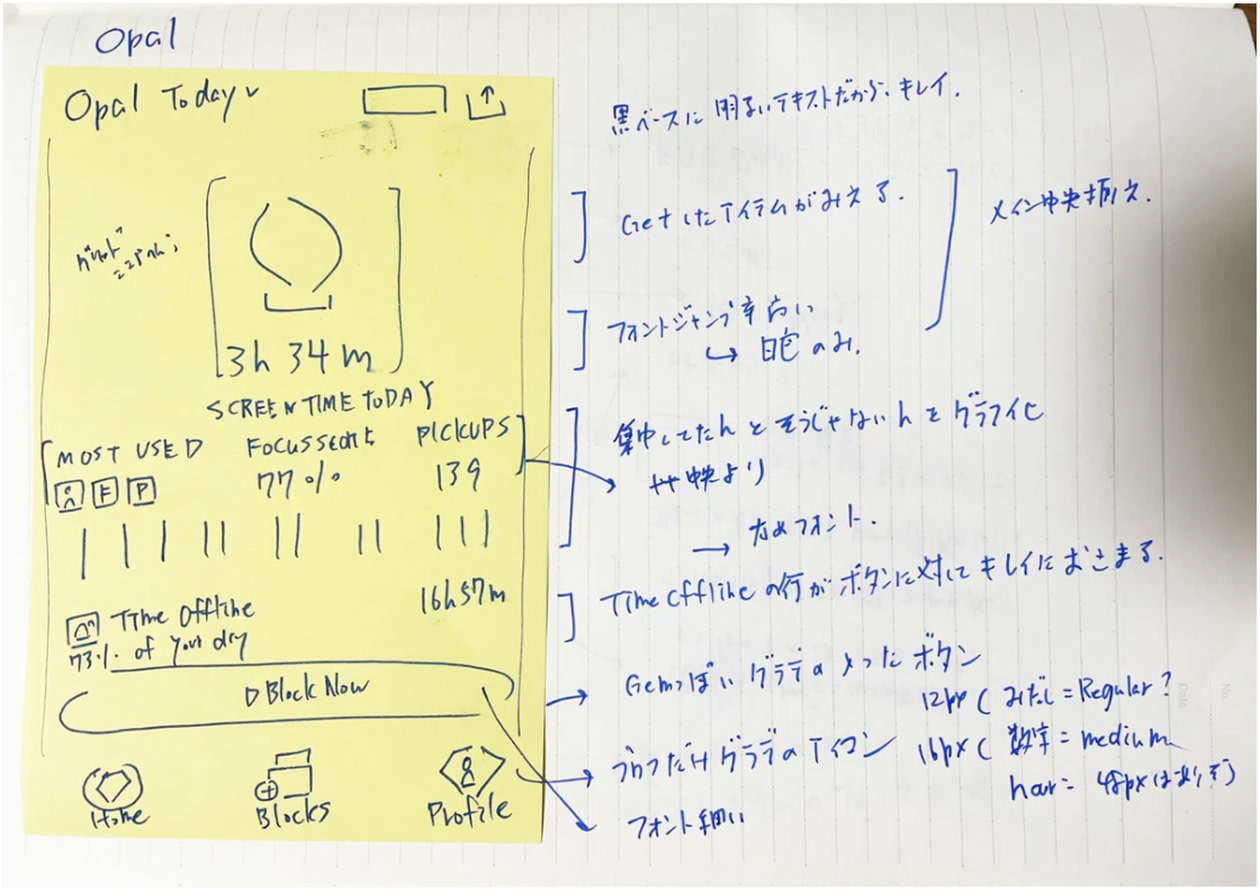 Opal
Opal Today
黒ベースに明るいテキストだから、キレイ.
Getしたアイテムがみえる.
メイン中央揃え.
3h 34m
フォントジャンプ率高い
↳ 白色のみ.
SCREEN TIME TODAY
MOST USED
FOCUS SCORE
PICKUPS
F P
77%
139
集中してたhとそうじゃないhをグラフ化
中央より
→ 太めフォント.
Time Offline
16h57m
73% of your day
Time Offlineの行がボタンに対してキレイにおさまる.
Block Now
Gemっぽいグラデのボタン
12px ( みだし = Regular?
16px ( 数字 = medium
hour = 48pxはありそう
グラデのアイコン
フォント細い
Home
Blocks
Profile